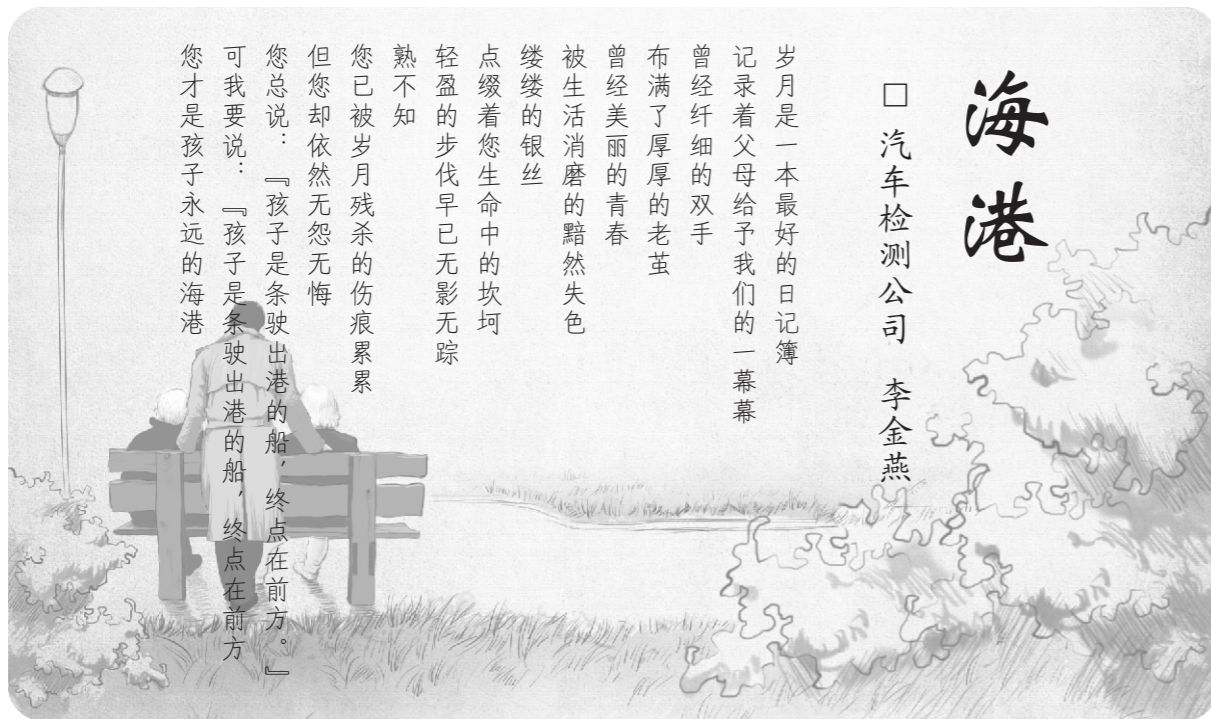 海港
□ 汽车检测公司 李金燕
岁月是一本最好的日记簿
记录着父母给予我们的一幕幕
曾经纤细的双手
布满了厚厚的老茧
曾经美丽的青春
被生活消磨的黯然失色
缕缕的银丝
点缀着您生命中的坎坷
轻盈的步伐早已无影无踪
熟不知
您已被岁月残杀的伤痕累累
但您却依然无怨无悔
您总说：『孩子是条驶出港的船，终点在前方。』
可我要说：『孩子是条驶出港的船，终点在前方
您才是孩子永远的海港